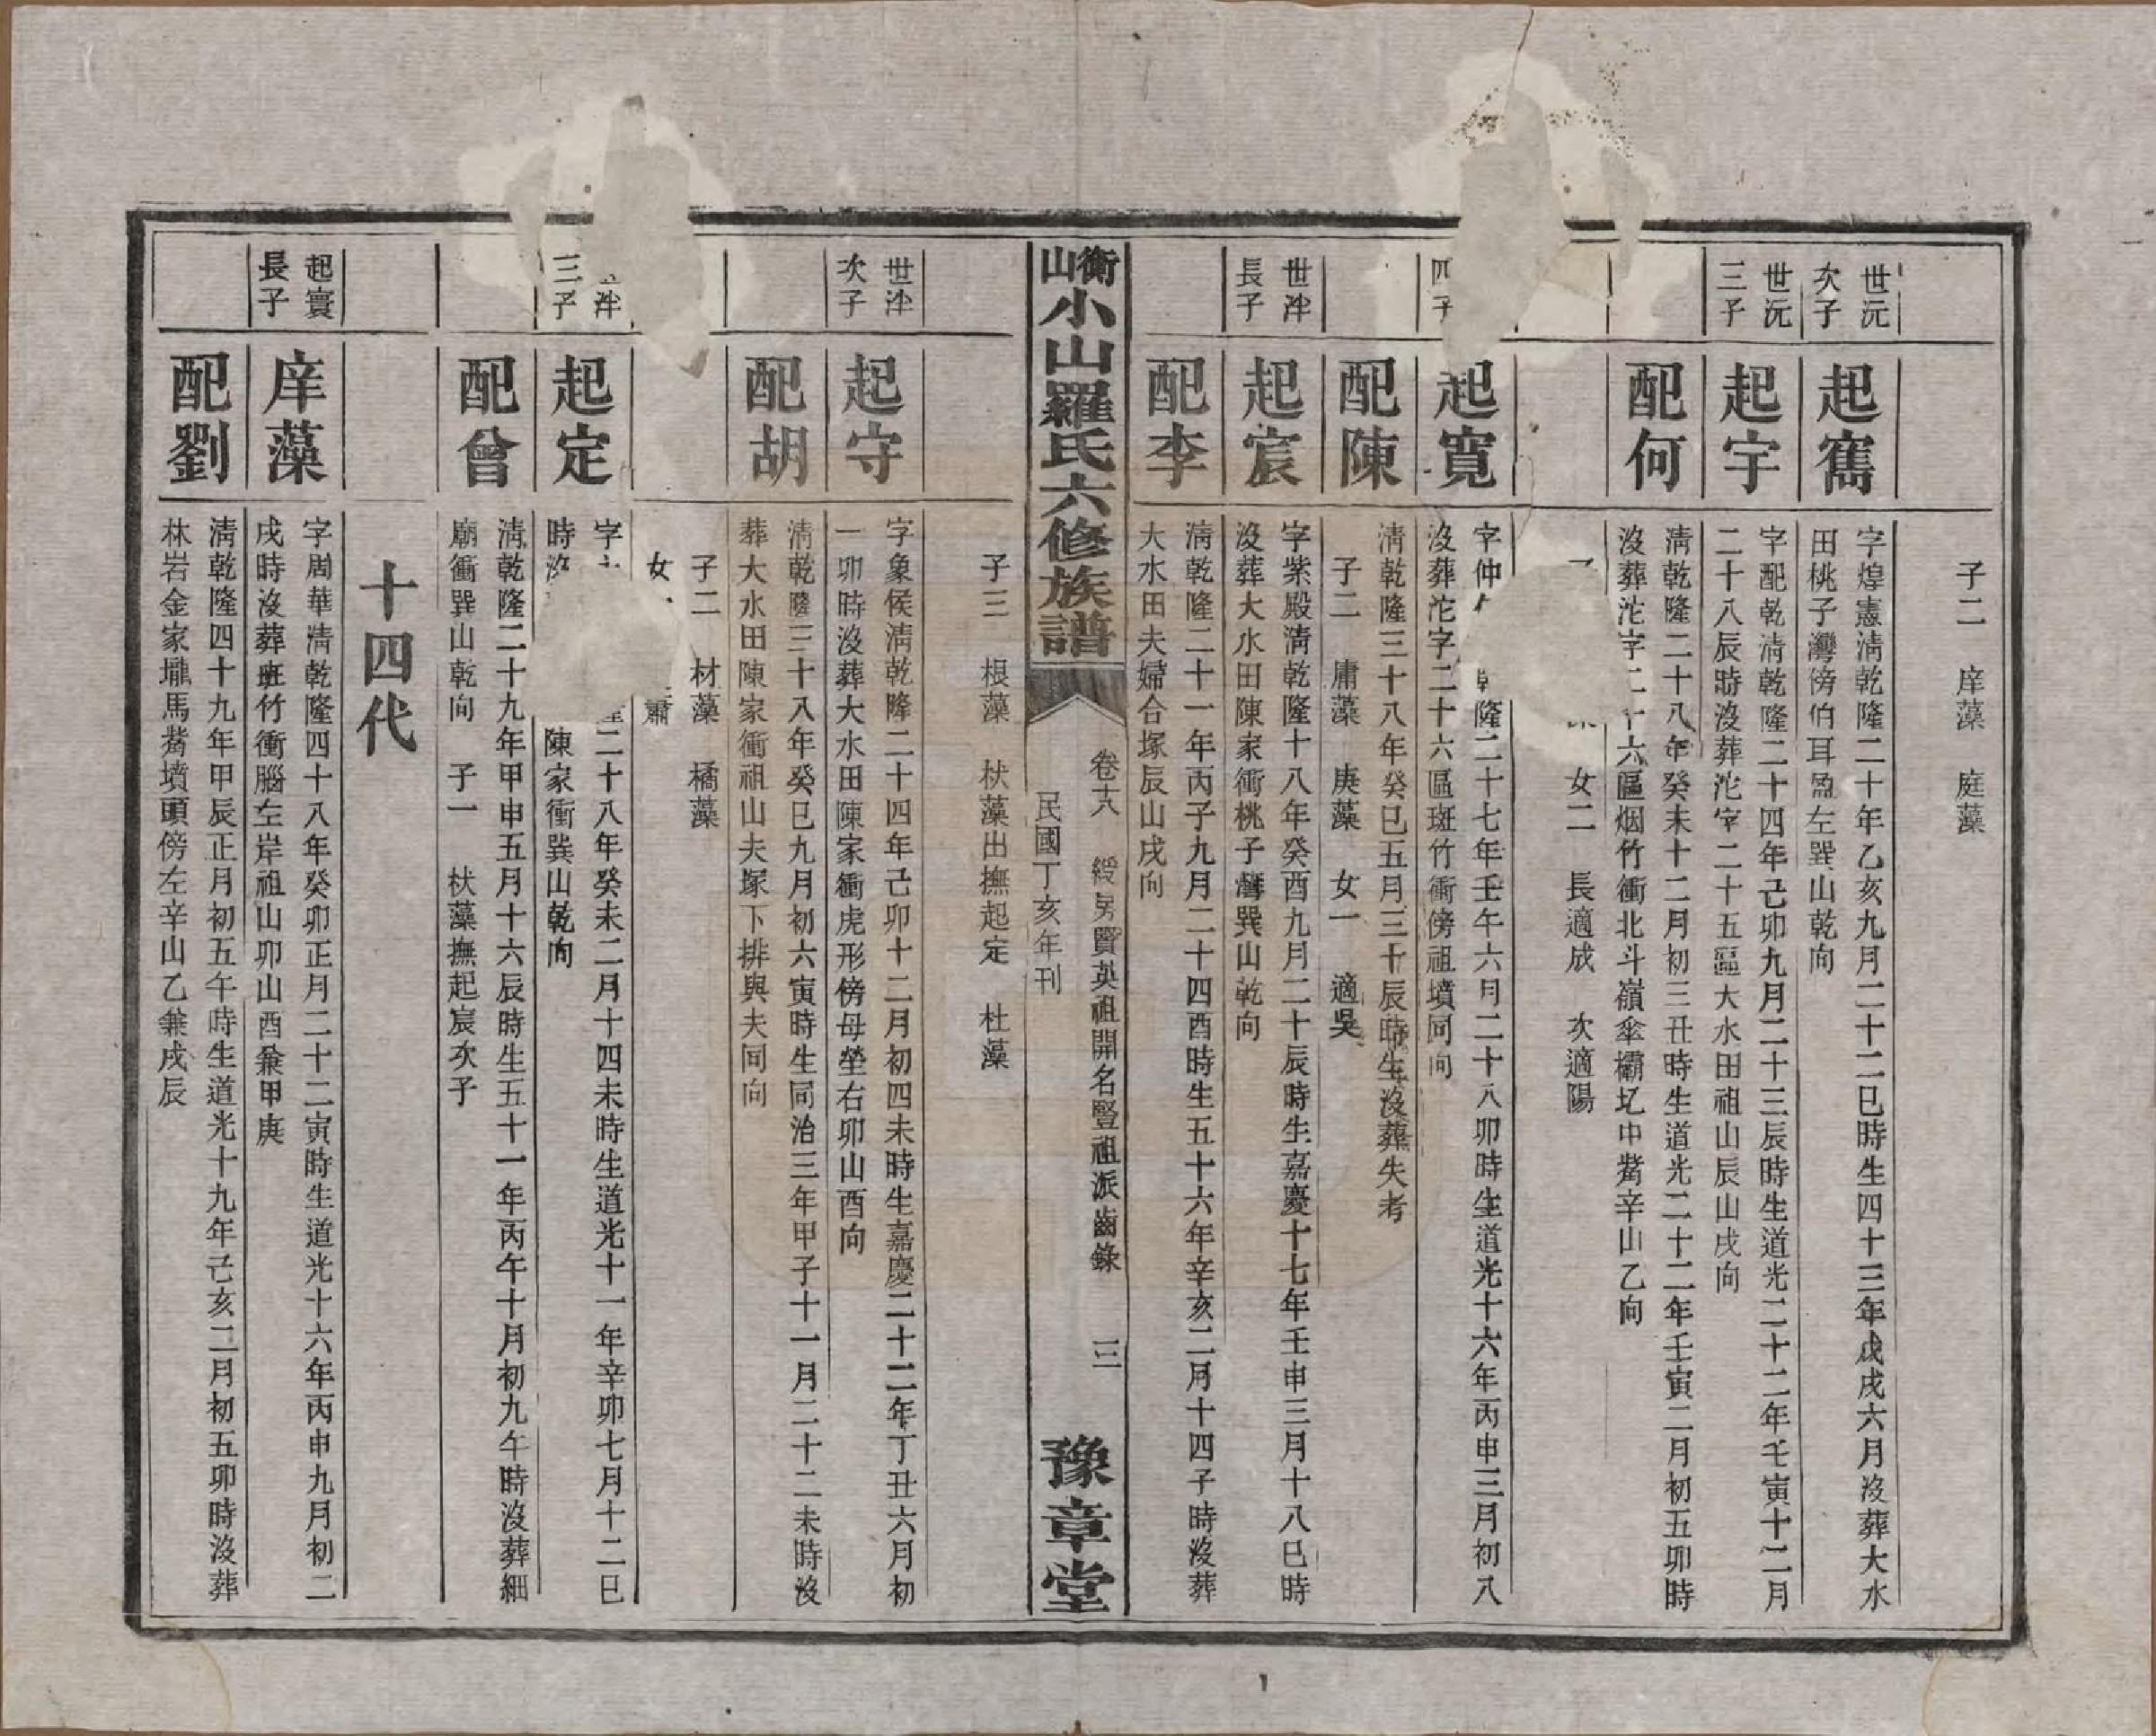 子二　庠藻　庭藻
世沅次子
起寯
字煌憲淸乾隆二十年乙亥九月二十二巳時生四十三年戊戌六月沒葬大水
田桃子灣傍伯耳盈左巽山乾向
世沅三子
起宇
字配乾淸乾隆二十四年己卯九月二十三辰時生道光二十二年壬寅十二月
二十八辰時沒葬沱字二十五區大水田祖山辰山戌向
配何
淸乾隆二十八年癸未十二月初三丑時生道光二十二年壬寅二月初五卯時
沒葬沱字二十六區烟竹衝北斗嶺傘欛圪中觜辛山乙向
女二　長適成　次適陽
四子
起寬
字仲　隆二十七年壬午六月二十八卯時生道光十六年丙申三月初八
沒葬沱字二十六區斑竹衝傍祖墳同向
配陳
淸乾隆三十八年癸巳五月三十辰時生沒葬失考
子二　庸藻　庚藻　女一　適吳
世泮長子
起宸
字紫殿淸乾隆十八年癸酉九月二十辰時生嘉慶十七年壬申三月十八巳時
沒葬大水田陳家衝桃子灣巽山乾向
配李
淸乾隆二十一年丙子九月二十四酉時生五十六年辛亥二月十四子時沒葬
大水田夫婦合塚辰山戌向
衡山小山羅氏六修族譜
卷十八　綬房賢英祖開名豎祖派齒錄　三
民國丁亥年刊
豫章堂
子三　根藻　杕藻出撫起定　杜藻
世泮次子
起守
字象侯淸乾隆二十四年己卯十二月初四未時生嘉慶二十二年丁丑六月初
一卯時沒葬大水田陳家衝虎形傍母塋右卯山酉向
配胡
淸乾隆三十八年癸巳九月初六寅時生同治三年甲子十一月二十二未時沒
葬大水田陳家衝祖山夫塚下排與夫同向
子二　材藻　橘藻
女　蕭
泮三子
起定
字　二十八年癸未二月十四未時生道光十一年辛卯七月十二巳
時沒　陳家衝巽山乾向
配曾
淸乾隆二十九年甲申五月十六辰時生五十一年丙午十月初九午時沒葬細
廟衝巽山乾向　子一　杕藻撫起宸次子
十四代
起寰長子
庠藻
字周華淸乾隆四十八年癸卯正月二十二寅時生道光十六年丙申九月初二
戌時沒葬斑竹衝腦左岸祖山卯山酉兼甲庚
配劉
淸乾隆四十九年甲辰正月初五午時生道光十九年己亥二月初五卯時沒葬
林岩金家壠馬觜墳頭傍左辛山乙兼戌辰